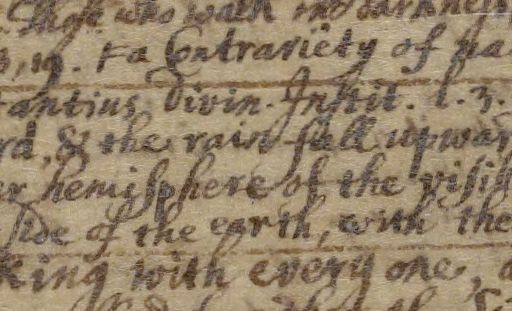 Those who walk into darkness
19. + a Contrariety of
antius Divin. Instit. l. 3.
rd, & the rain fall upwar
er hemisphere of the visi
side of the earth, with the
king with every one,